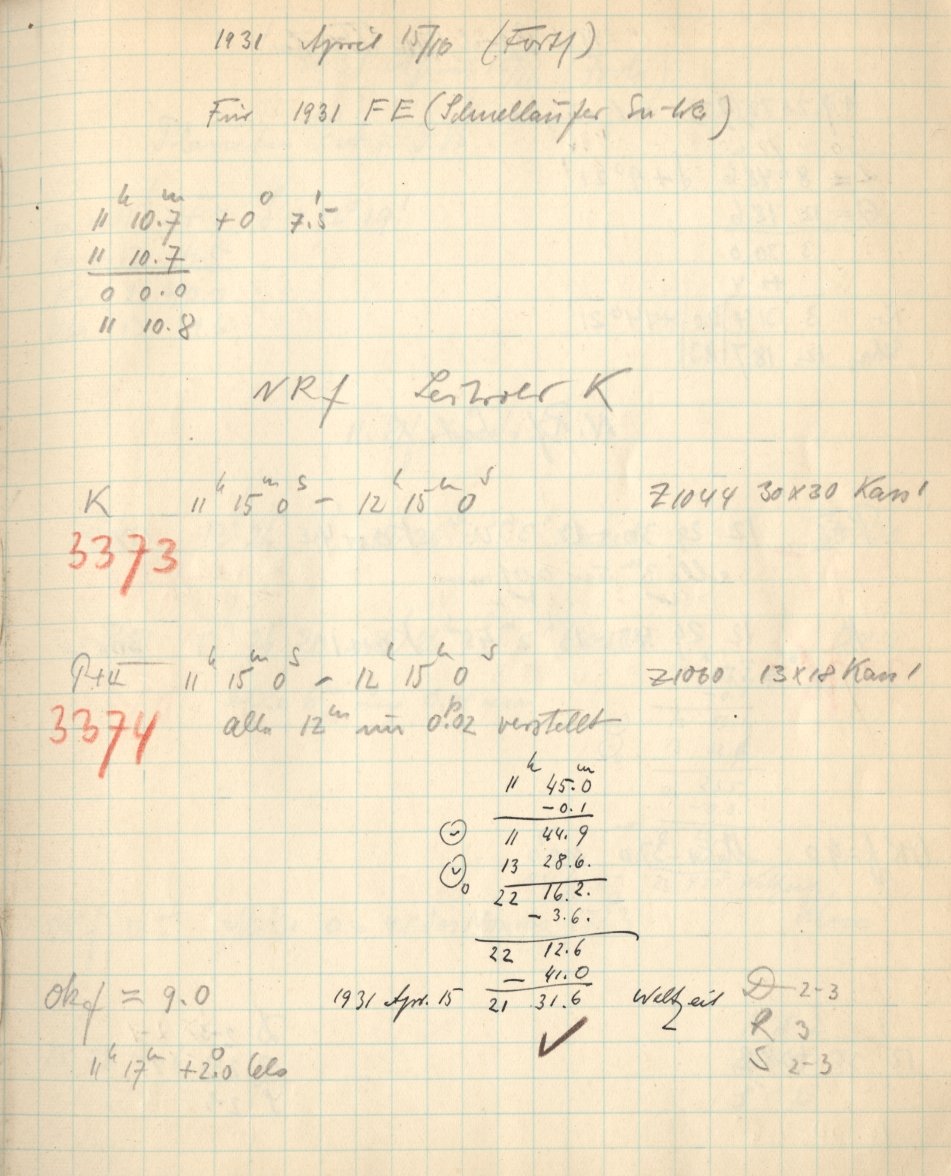 1931 April 15/16 (Forts)
Für 1931 FE (Schnelläufer
11ʰ 10.ᵐ7 +0° 7.'5
11 10.7
0 0.0
11 10.8
NRf K
K 11ʰ 15ᵐ 0ˢ – 12ʰ 15ᵐ 0ˢ Z1044 30×30 Kass 1
3373
11ʰ 15ᵐ 0ˢ – 12ʰ 15ᵐ 0ˢ Z1060 13×18 Kass 1
3374 alle 12ᵐ um 0.ᵖ02 verstellt
11ʰ 45.ᵐ0
-0.1
11 44.9
13 28.6.
22 16.2.
- 3.6.
22 12.6
- 41.0
Okf = 9.0 1931 Apr. 15 21 31.6 Weltzeit D 2-3
R 3
11ʰ 17ᵐ +2.°0 S 2-3